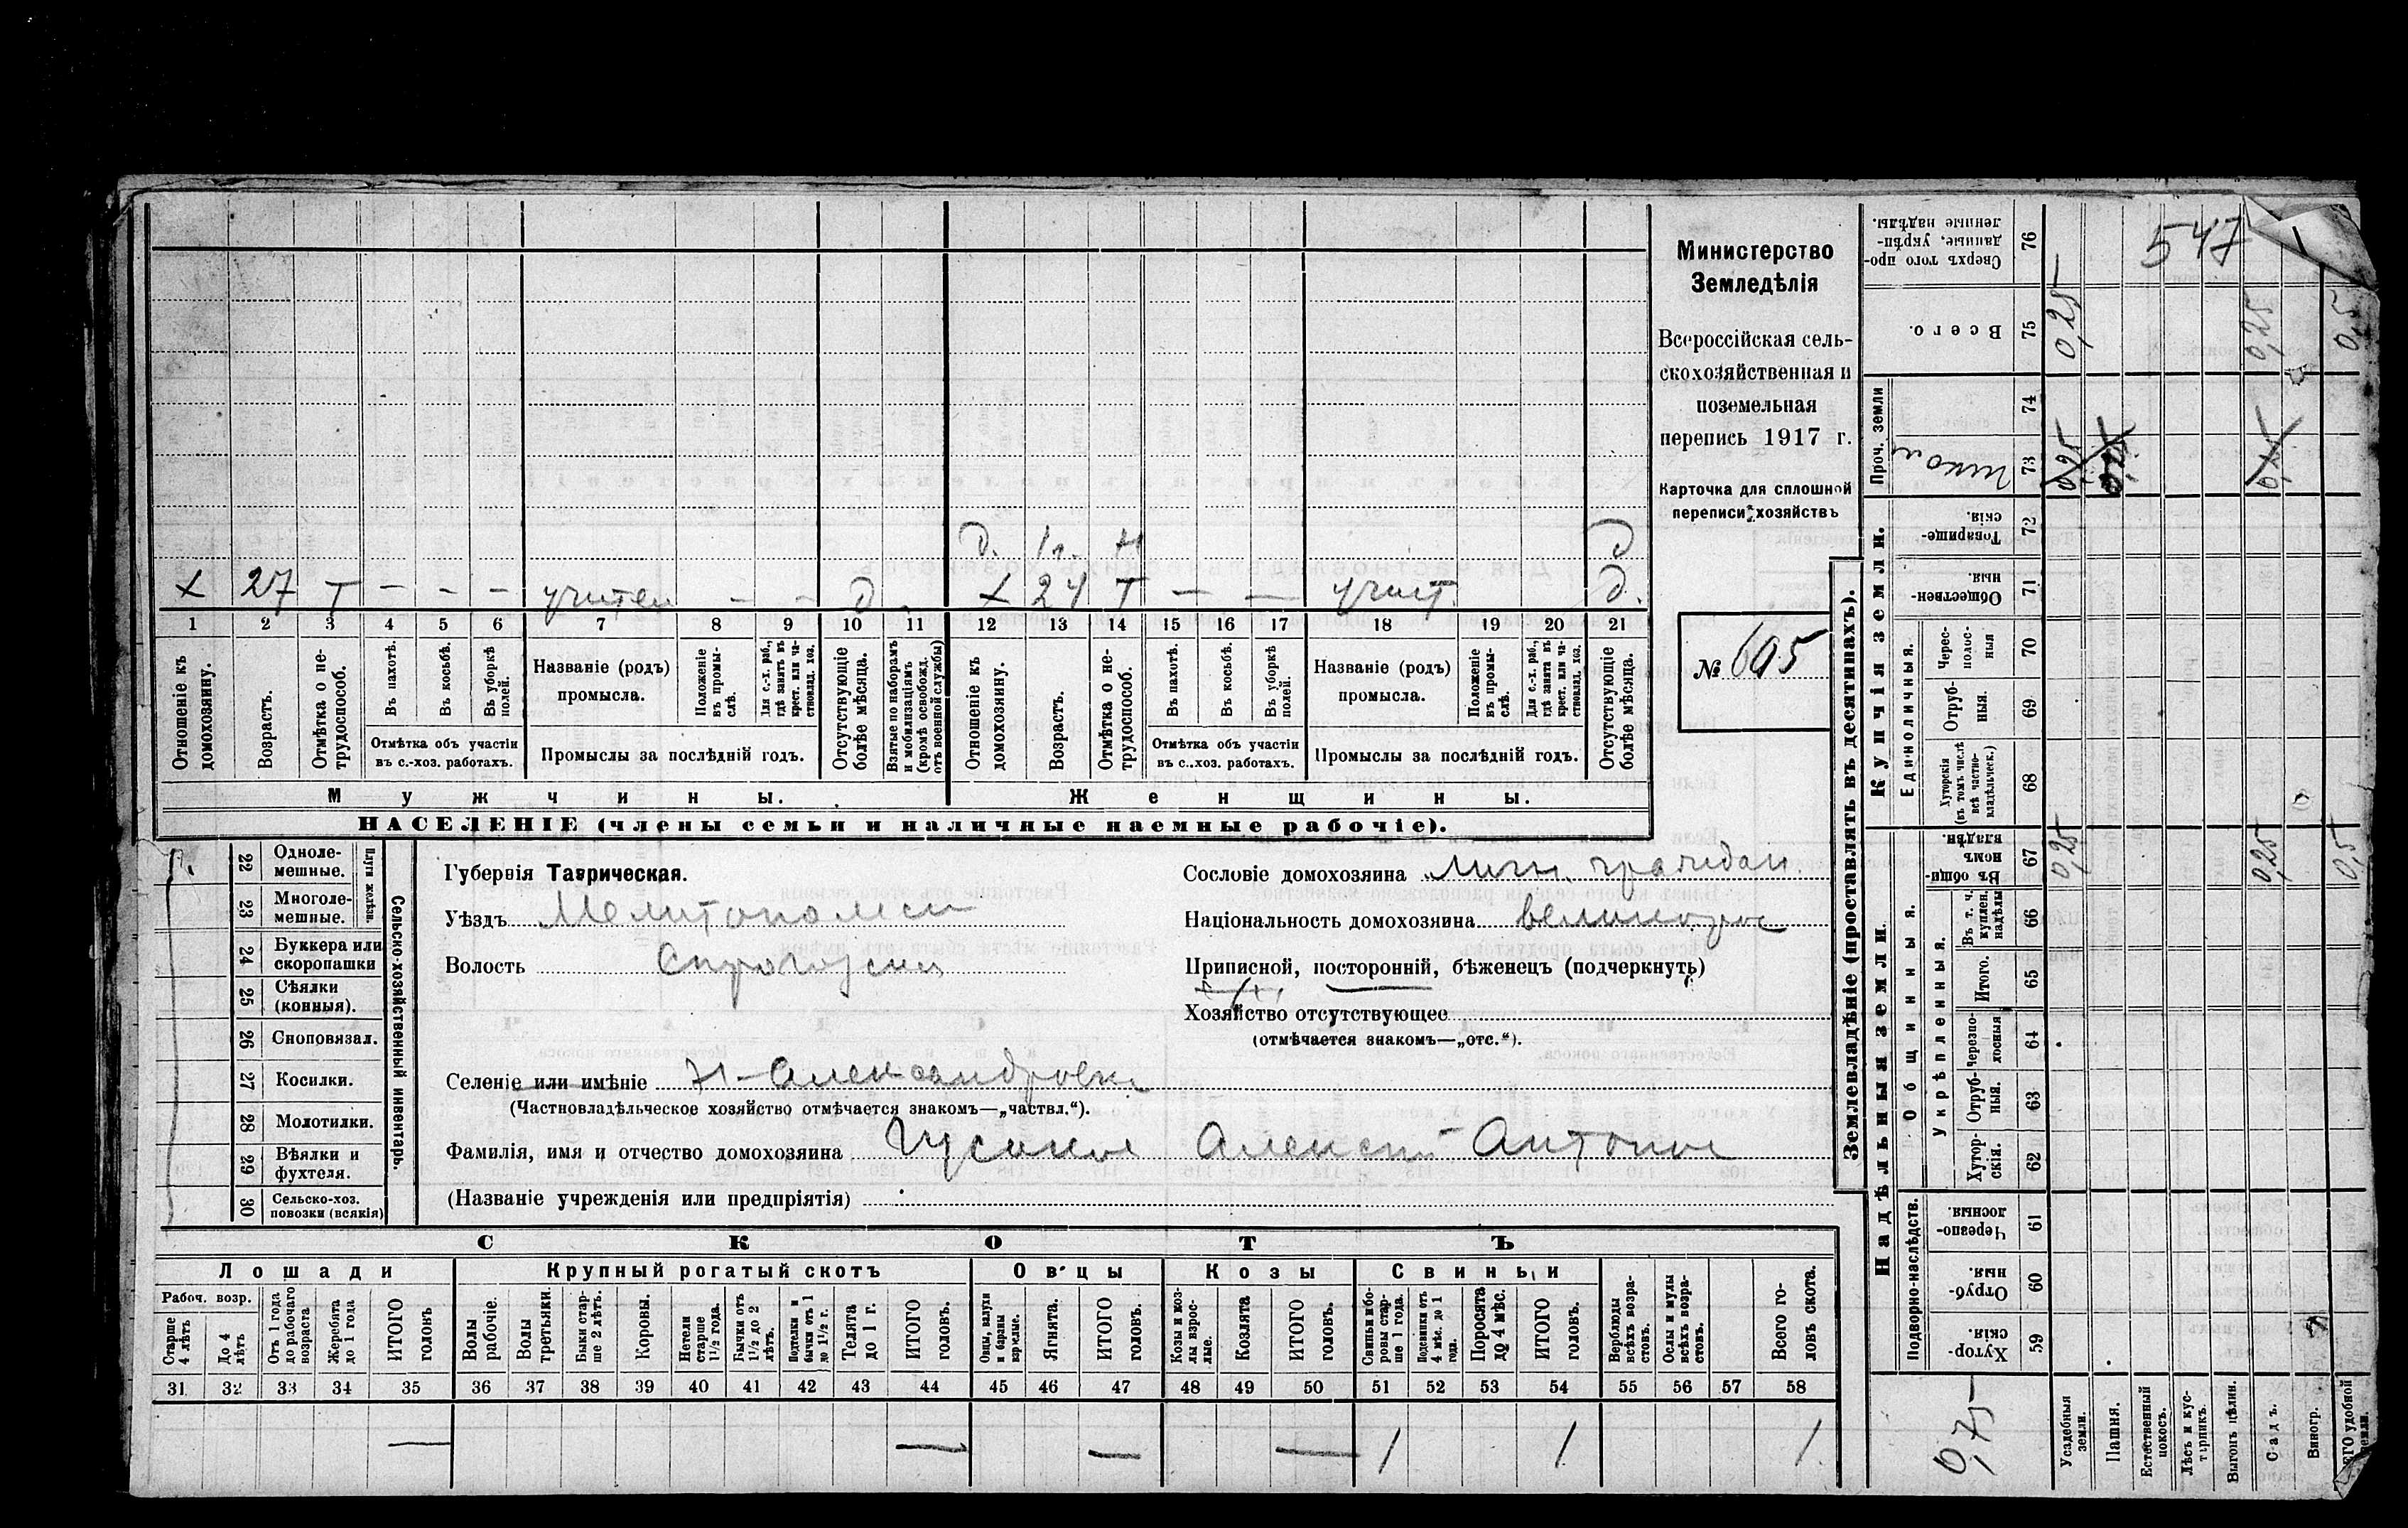 547
Министерство
Земледѣлія
Всероссійская сель-
скохозяйственная и
поземельная
перепись 1917 г.
Карточка для сплошной
переписи хозяйствъ
№ 605
д. 1 г. н д
х 27 т — - - — - д х 24 т — — учит. д.
1 2 3 4 5 6 7 8 9 10 11 12 13 14 15 16 17 18 19 20 21
Отношеніе къ домохозяину.
Возрастъ.
Отмѣтка о не-трудоспособ.
Въ пахотѣ.
Въ косьбѣ.
Въ уборкѣ полей.
Отмѣтка объ участіи
въ с.-хоз. работахъ.
Названіе (родъ)
промысла.
Положеніе въ промы-слѣ.
Для с.-х. раб., гдѣ занятъ въ крест. или ча-стновлад. хоз.
Промыслы за послѣдній годъ.
Отсутствующіе болѣе мѣсяца.
Взятые по наборамъ и мобилизаціямъ (кромѣ освобожд. отъ военной службы)
Отношеніе къ домохозяину.
Возрастъ.
Отмѣтка о не-трудоспособ.
Въ пахотѣ.
Въ косьбѣ.
Въ уборкѣ полей.
Отмѣтка объ участіи
въ с..-хоз. работахъ.
Названіе (родъ)
промысла.
Положеніе въ промы-слѣ.
Для с.-х. раб., гдѣ занятъ въ крест. или ча-стновлад. хоз.
Промыслы за послѣдній годъ.
Отсутствующіе болѣе мѣсяца.
Мужчины. Женщины.
НАСЕЛЕНІЕ (члены семьи и наличные наемные рабочіе).
22 Одноле-мешные.
23 Многоле-мешные.
Плуги желѣзн.
24 Буккера или скоропашки
25 Сѣялки (конныя).
26 Сноповязал.
27 Косилки.
28 Молотилки.
29 Вѣялки и фухтеля.
30 Сельско-хоз. повозки (всякія)
Сельско-хозяйственный инвентарь.
Губернія Таврическая.
Уѣздъ Мелитопольск
Волость
Сословіе домохозяина личн. граждан.
Національность домохозяина великорос
Приписной, посторонній, бѣженецъ (подчеркнуть)
Хозяйство отсутствующее
(отмѣчается знакомъ—„отс.“).
Селеніе или имѣніе Н-Александровка
(Частновладѣльческое хозяйство отмѣчается знакомъ—„частвл.“).
Фамилія, имя и отчество домохозяина Алексѣй Антонов
(Названіе учрежденія или предпріятія)
СКОТЪ
Лошади Крупный рогатый скотъ Овцы Козы Свиньи
Рабоч. возр.
Старше 4 лѣтъ
До 4 лѣтъ
Отъ 1 года до рабочаго возраста
Жеребята до 1 года
ИТОГО головъ
Волы рабочіе.
Волы третьяки.
Быки стар-ше 2 лѣтъ.
Коровы.
Нетели старше 1½ года.
Бычки отъ 1½ до 2 лѣтъ.
Подтелки и бычки отъ 1 до 1½ г.
Телята до 1 г.
ИТОГО головъ.
Овцы, валухи и бараны взрослые.
Ягнята.
ИТОГО головъ.
Козы и коз-лы взрос-лые.
Козлята
ИТОГО головъ.
Свиньи и бо-ровы стар-ше 1 года.
Подсвинки отъ 4 мѣс. до 1 года.
Поросята до 4 мѣс.
ИТОГО головъ.
Верблюды всѣхъ возра-стовъ.
Ослы и мулы всѣхъ возра-стовъ.
Всего го-ловъ скота.
31 32 33 34 35 36 37 38 39 40 41 42 43 44 45 46 47 48 49 50 51 52 53 54 55 56 57 58
— — — — 1 1 1
Землевладѣніе (проставлять въ десятинахъ).
Надѣльныя земли.
Купчія земли.
Проч. земли
Подворно-наслѣдств.
Общинныя.
Укрѣпленныя.
Единоличныя.
59 Хутор-скія.
60 Отруб-ныя.
61 Черезпо-лосныя.
62 Хутор-скія.
63 Отруб-ныя.
64 Черезпо-лосныя
65 Итого.
66 Въ т. ч. куплен. надѣлы
67 Въ общин-номъ владѣн.
68 Хуторскія (въ томъ числѣ всѣ частно-владѣльческ.)
69 Отруб-ныя.
70 Черес-полос-ныя
71 Обществен-ныя.
72 Товарище-скія.
73
74
75 Всего.
76 Сверхъ того про-данные, укрѣп-ленные надѣлы.
Усадебныя земли.
Пашня.
Естественный покосъ.
Лѣсъ и кус-тарникъ.
Выгонъ цѣлин.
Садъ.
Виногр.
удобной земли.
0,25 0,25 0,5
0,25 0,25 0,5
0,75